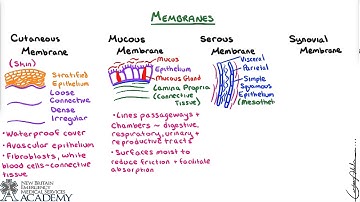 MEMBRANES
Cutaneous
Membrane
(Skin)
Stratified
Epithelium
Loose
Connective
Dense
Irregular
• Waterproof cover
• Avascular epithelium
• Fibroblasts, white
blood cells-connective
tissue
Mucous
Membrane
Mucus
Epithelium
Mucous Gland
Lamina Propria
(Connective
Tissue)
• Lines passageways +
chambers ~ digestive,
respiratory, urinary +
reproductive tracts
• Surfaces moist to
reduce friction + facilitate
absorption
Serous
Membrane
Visceral
Parietal
Simple
Squamous
Epithelium
(Mesothel
Synovial
Membrane
NEW BRITAIN
EMERGENCY
MEDICAL SERVICES
ACADEMY